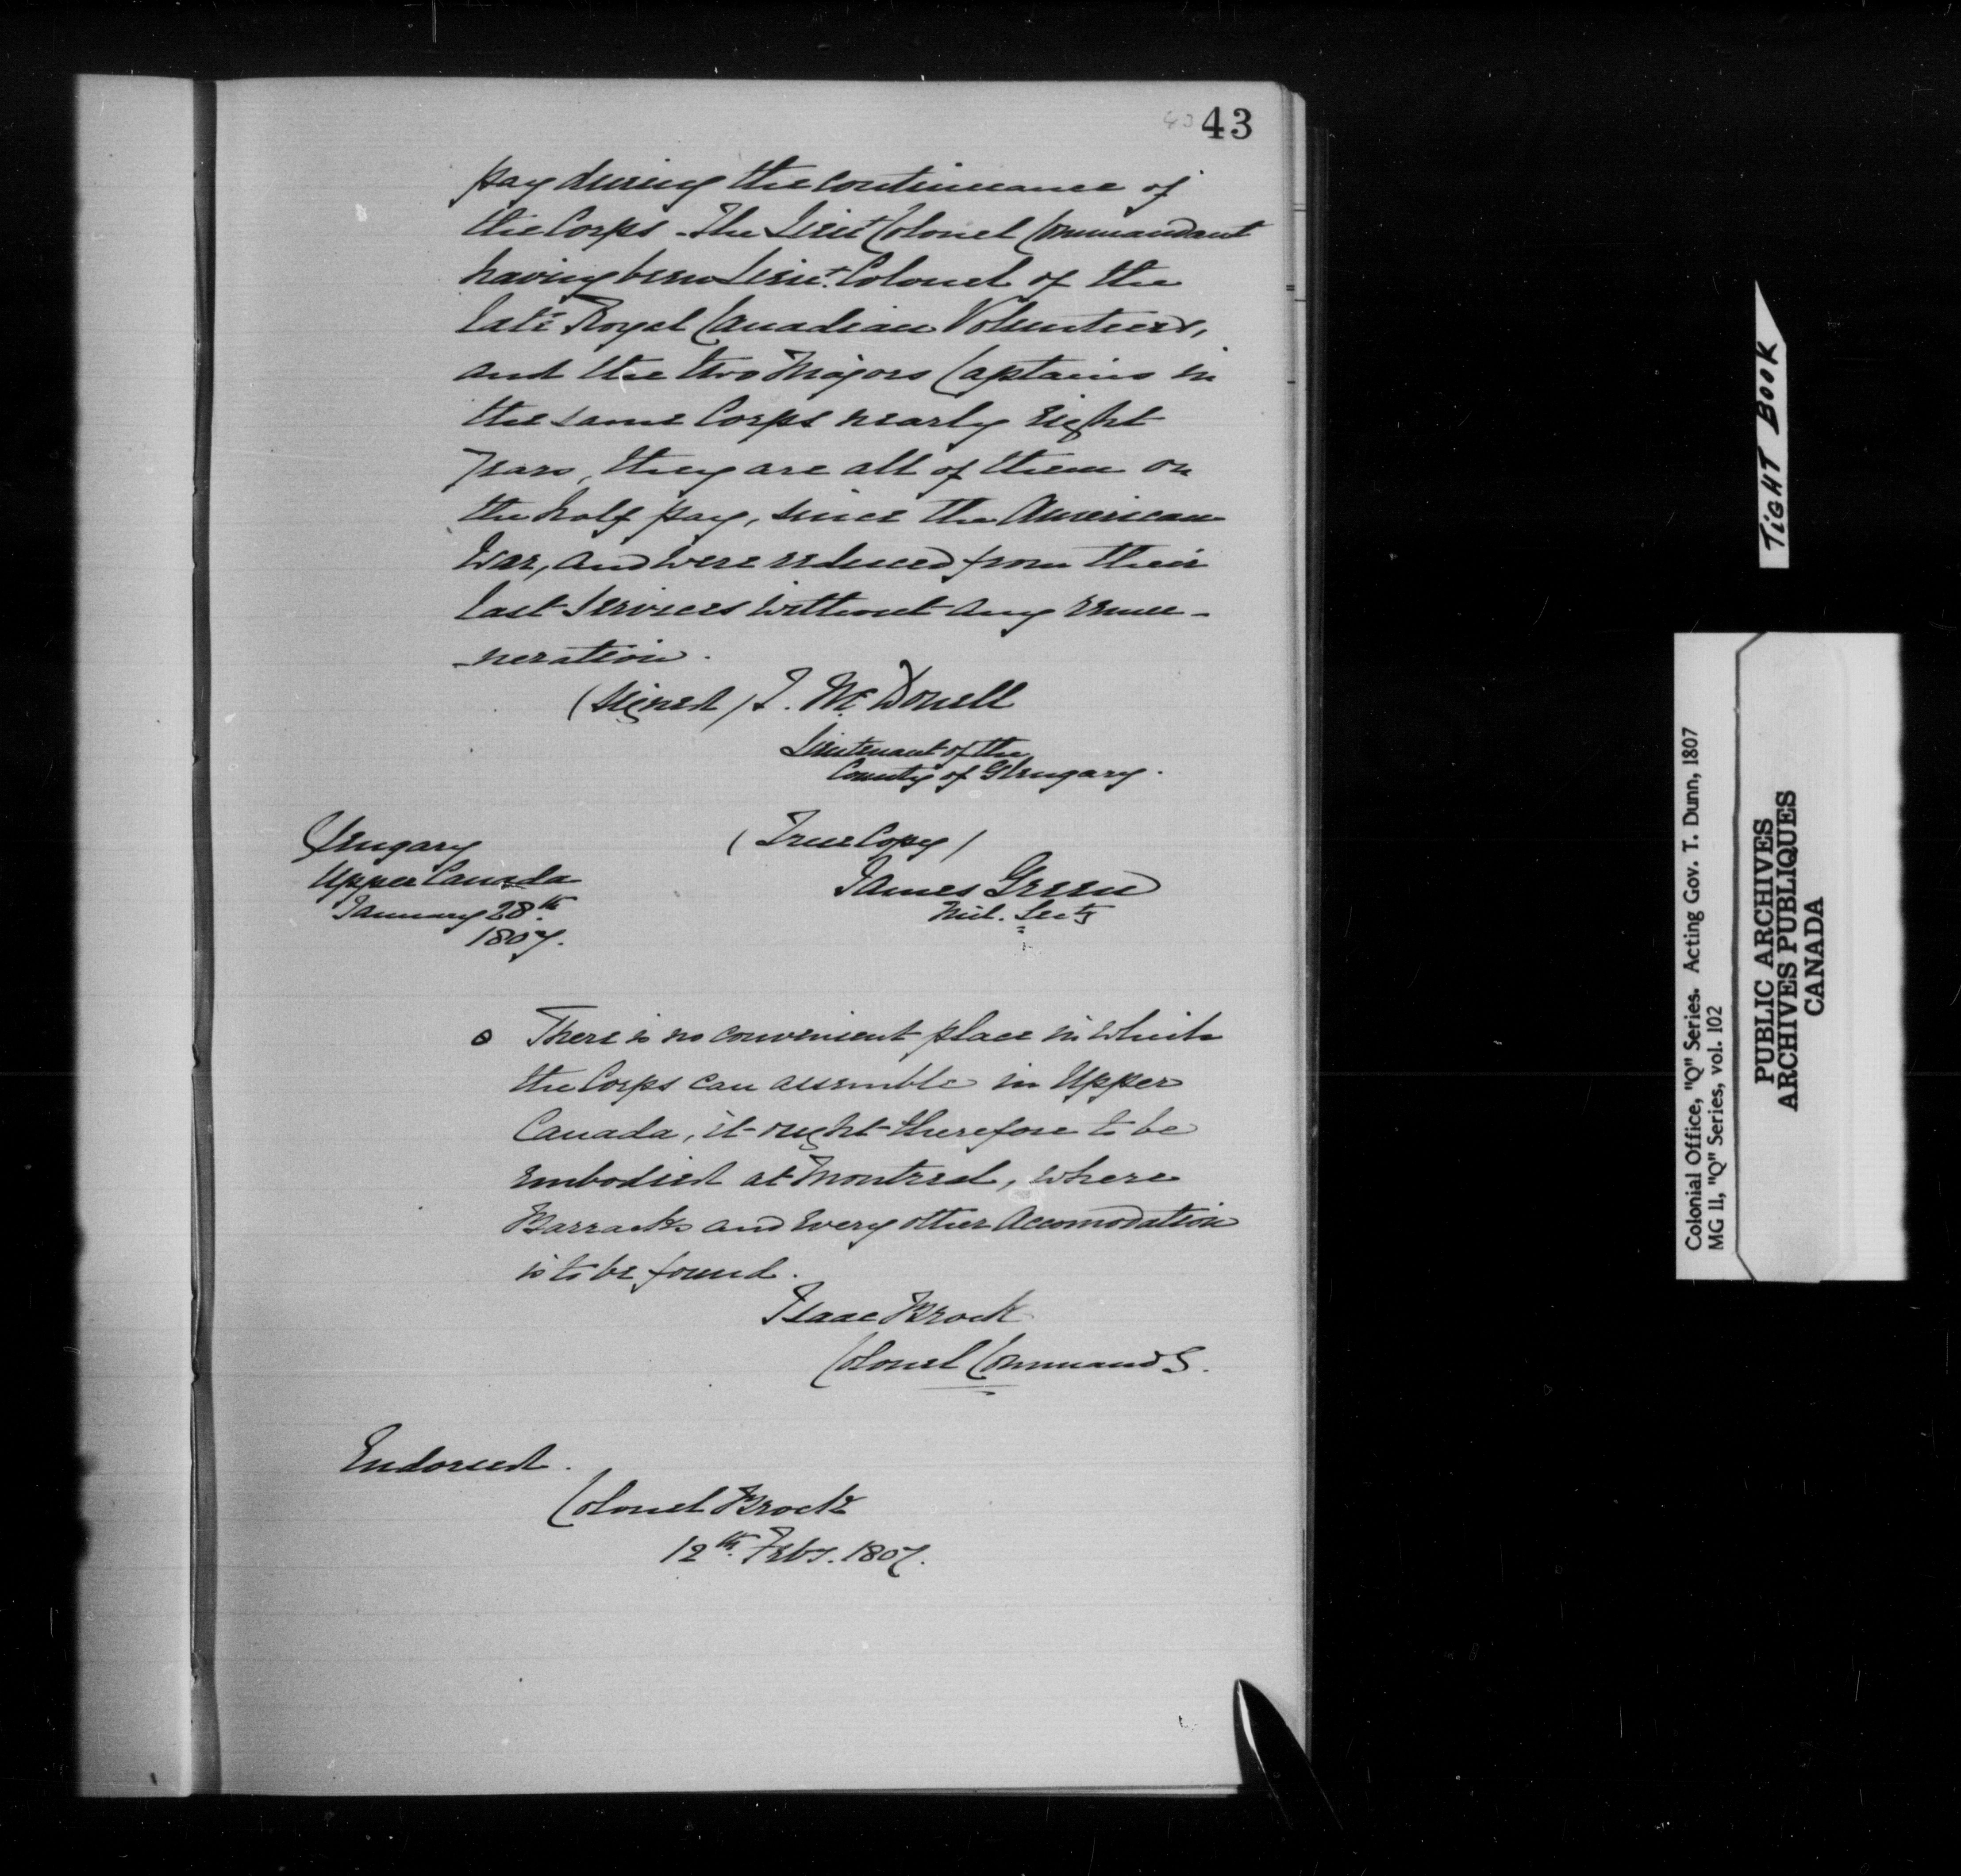 43 43
pay during the continuance of
the Corps - The Lieut Colonel Commandant
having been Lieut. Colonel of the
late Royal Canadian Volunteers,
and the two Majors Captains in
the same Corps nearly Eight
Years, they are all of them on
the half pay, since the American
War, and were reduced from their
last Services without any remu-
-neration.
(signed) J. McDonell
Lieutenant of the
County of Glengary.
Glengary
Upper Canada
January 28th
1807.
(True Copy)
James Green
Mil. Secty
There is no convenient place in which
the Corps can assemble in Upper
Canada, it ought therefore to be
Embodied at Montreal, where
Barracks and Every other Accomodation
is to be found.
Isaac Brock
Colonel Commandg.
Endorsed.
Colonel Brock
12th Feby. 1807.
TIGHT BOOK
Colonial Office, "Q" Series. Acting Gov. T. Dunn, 1807
MG 11, "Q" Series, vol. 102
PUBLIC ARCHIVES
ARCHIVES PUBLIQUES
CANADA